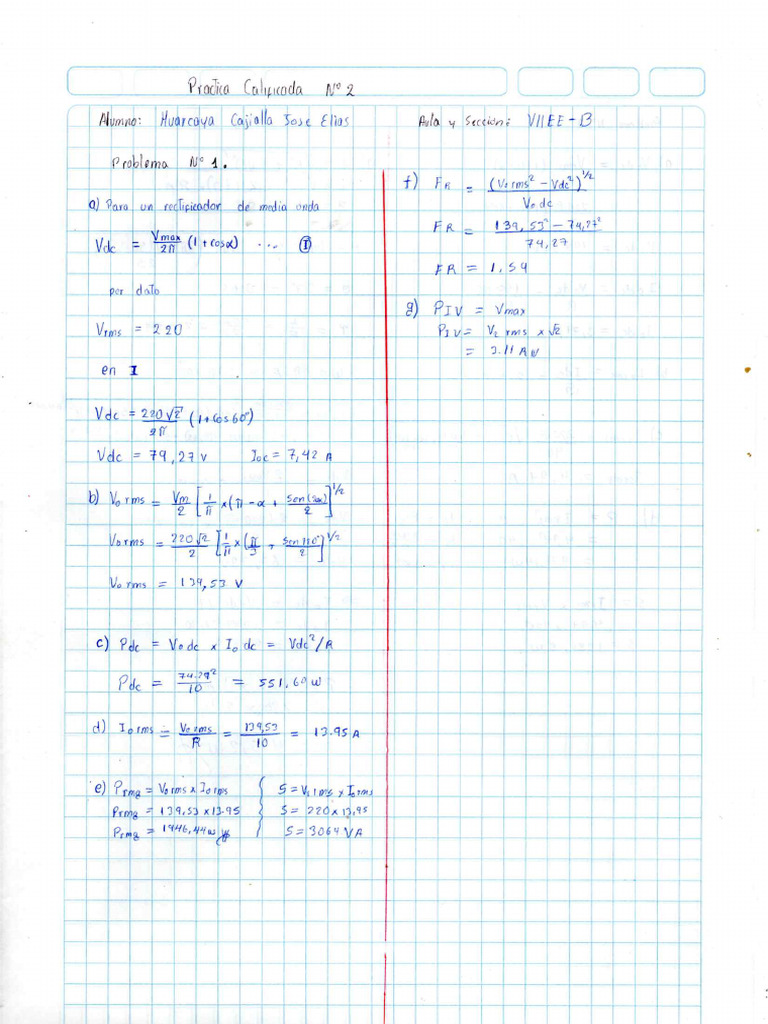 Practica Calificada N° 2
Alumno: Huarcaya Cajialla Jose Elias
Aula y Sección: VIIEE-B
Problema N° 1.
a) Para un rectificador de media onda
Vdc = Vmax/2π (1+cosα) ... Ⓘ
por dato
Vrms = 220
en I
Vdc = 220√2/2π (1+cos60°)
Vdc = 79,27 V Idc = 7,42 A
b) Vo rms = Vm/2 [1/π x(π-α + sen(2α)/2]^1/2
Vorms = 220√2/2 [1/π x(π/3 + sen120°/2]^1/2
Vo rms = 139,53 V
c) Pdc = Vodc x Io dc = Vdc²/R
Pdc = 74.27²/10 = 551,60 w
d) Iorms = Vorms/R = 139,53/10 = 13.95 A
e) Prms = Vorms x Iorms
Prms = 139.53 x 13.95
Prms = 1946,44 w
S = Vs rms x Iorms
S = 220 x 13.95
S = 3064 VA
f) FR = (Vorms² - Vdc²)^1/2 / Vodc
FR = 139,53² - 74,27² / 74,27
FR = 1.59
g) PIV = Vmax
PIV = V2 rms x √2
= 3.11